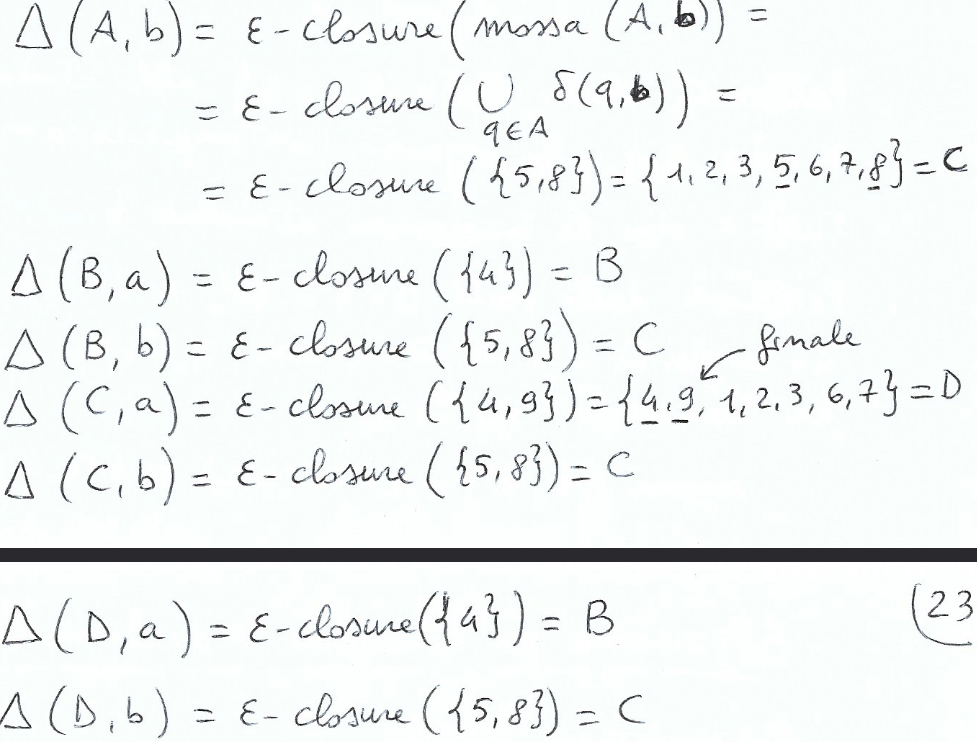 Δ(A, b) = ε-closure(mossa(A, b)) =
= ε-closure(∪ δ(q, b)) =
q∈A
= ε-closure({5, 8}) = {1, 2, 3, 5, 6, 7, 8} = C
Δ(B, a) = ε-closure({4}) = B
Δ(B, b) = ε-closure({5, 8}) = C
finale
Δ(C, a) = ε-closure({4, 9}) = {4, 9, 1, 2, 3, 6, 7} = D
Δ(C, b) = ε-closure({5, 8}) = C
Δ(D, a) = ε-closure({4}) = B
(23
Δ(D, b) = ε-closure({5, 8}) = C